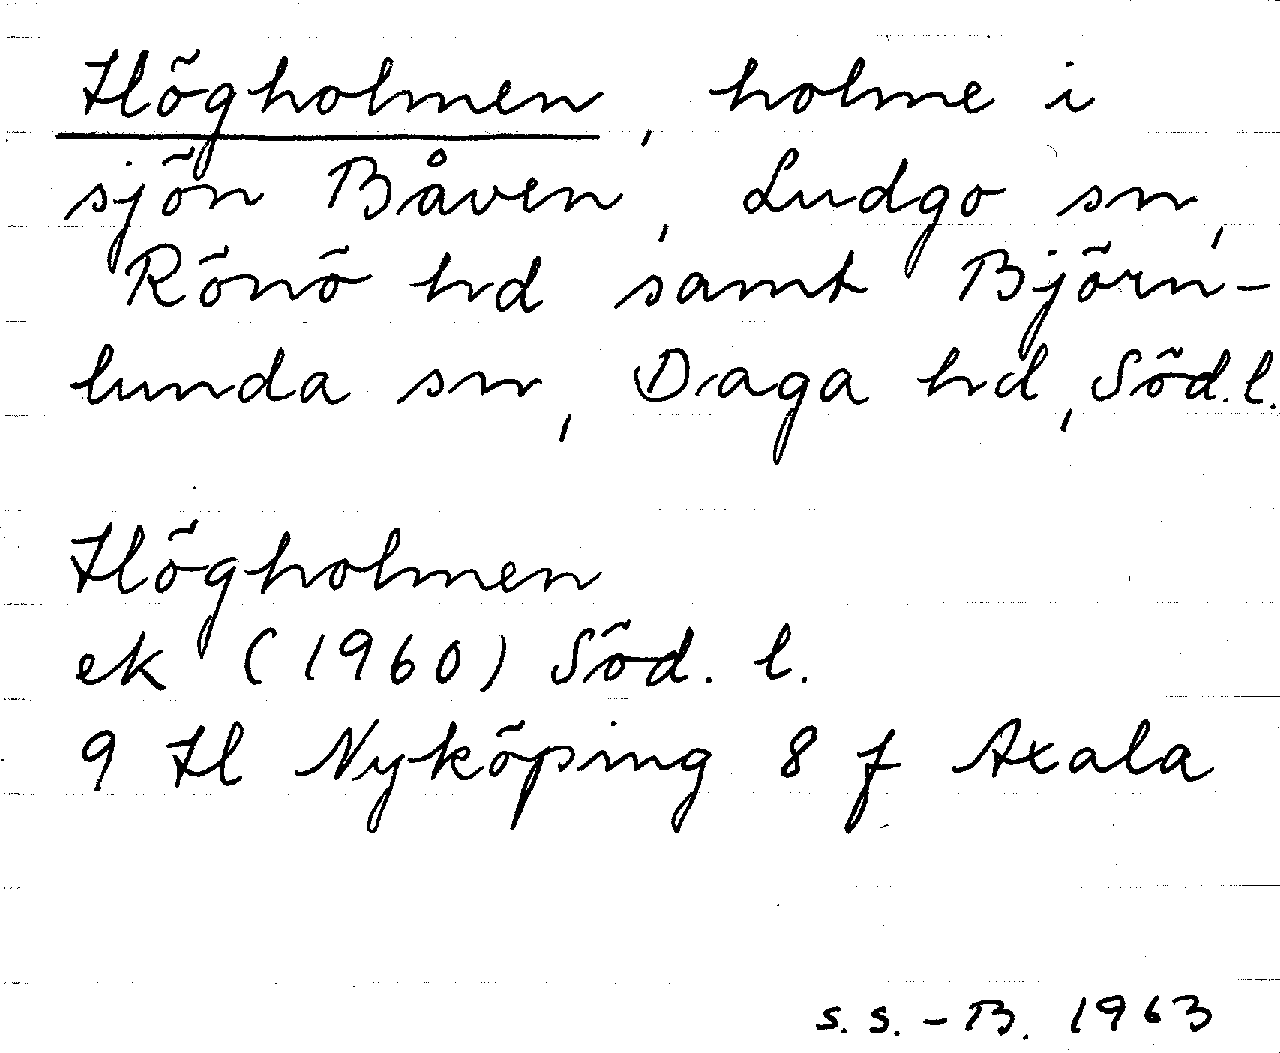 Högholmen, holme i
sjön Båven, Ludgo sn,
Rönö hd samt Björn-
lunda sn, Daga hd, Söd.l.
Högholmen
ek (1960) Söd. l.
9 H Nyköping 8 f Axala
S.S.-B. 1963